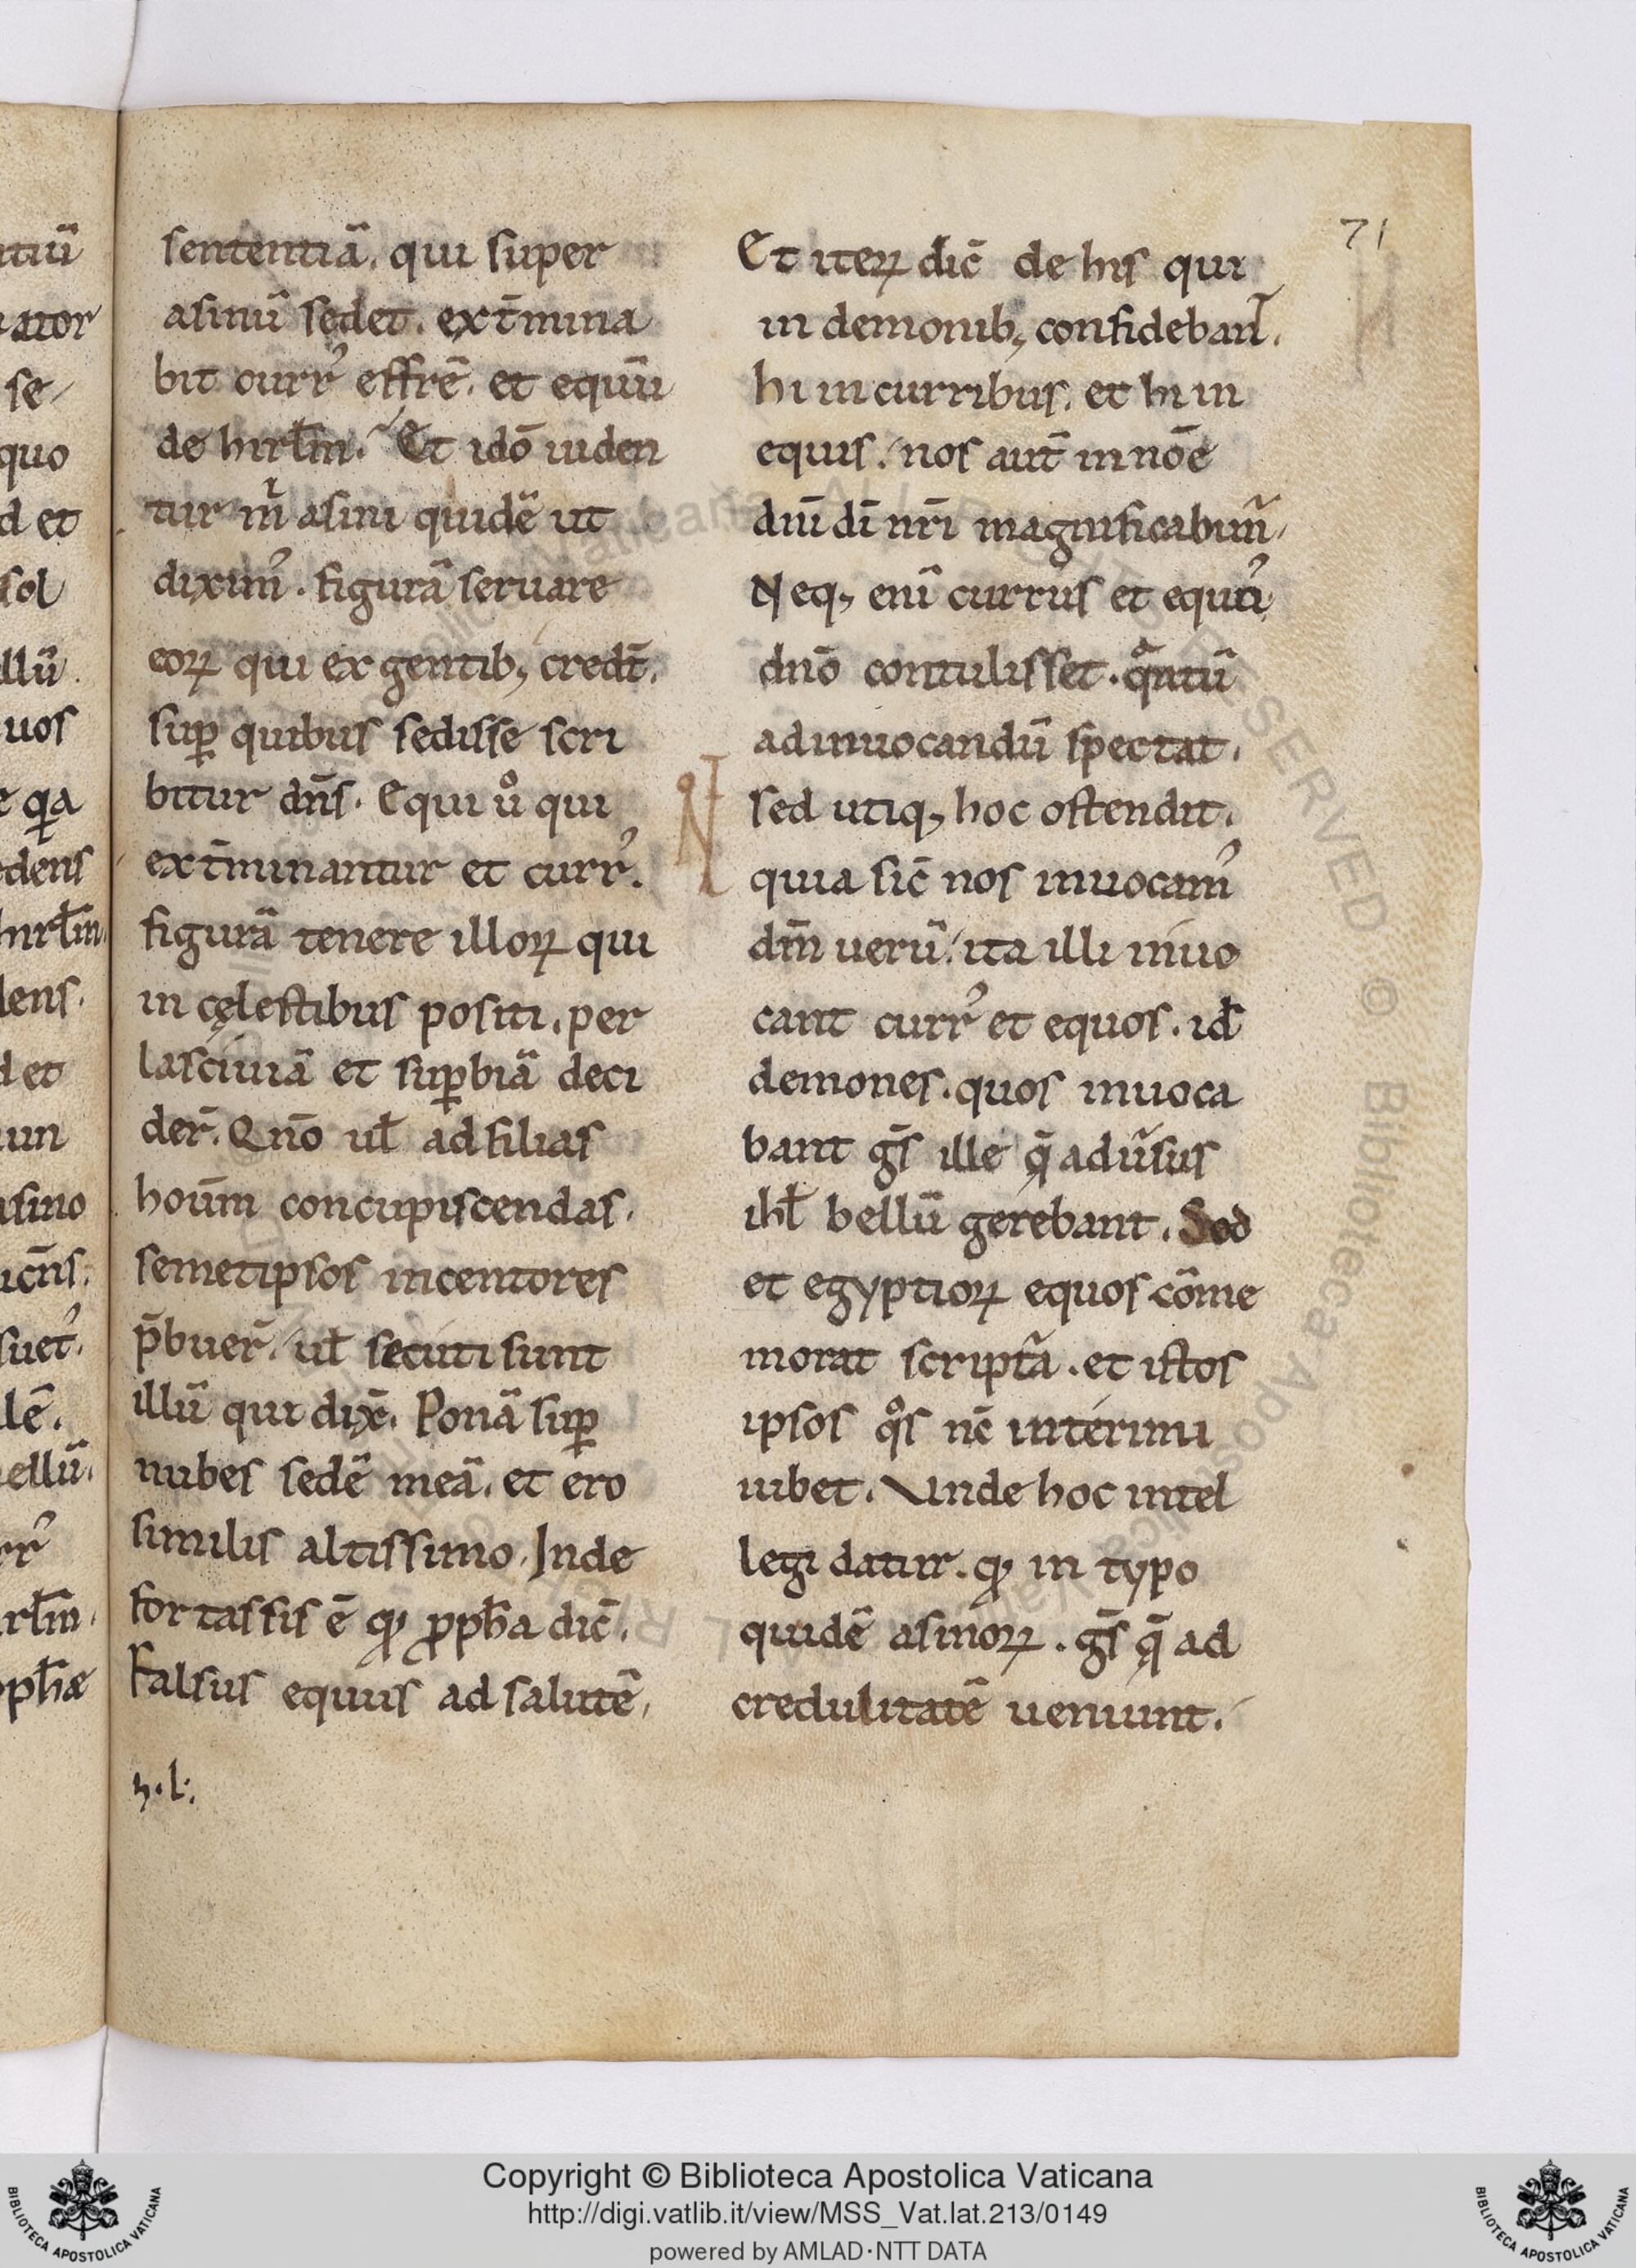 71
sententiā. qui super
asinū sedet. ext̄mina
bit currꝰ effrē. et equū
de hirl̄m. Et idō uiden
tur m̄ asini quidē ut
diximꝰ. figurā seruare
eoꝝ qui ex gentib; credt̄.
suꝑ quibus sedisse scri
bitur dn̄s. Equi uͦ qui
ext̄minantur et currꝰ.
figurā tenere illoꝝ qui
in cęlestibus positi. per
lasciuiā et suꝑbiā deci
der̄. Qn̄o ul̄ ad filias
houm̄ concupiscendas.
semetipsos incentores
p̄buer̄. ul̄ secuti sunt
illū qui dix̄. Ponā suꝑ
nubes sedē meā. et ero
similis altissimo. Inde
fortassis ē ꝙ ꝓph̄a dic̄.
Falsus equus ad salutē.
h.l:
Et iteꝝ dic̄ de his qui
in demonib; confidebant̄.
hi in curribus. et hi in
equis. nos aut̄ in nōe
dn̄i dī nr̄i magnificabim̄
Neq; enī currus et equi
dn̄o contulisset. qᵃntū
ad inuocandū spectat.
sed utiq; hoc ostendit.
quia sic̄ nos inuocamꝰ
dm̄ uerū. ita illi inuo
cant currꝰ et equos. id̄
demones. quos inuoca
bant gs̄ ille q̄ adūsus
ihl̄ bellū gerebant. Sed
et egyptioꝝ equos cōme
morat scriptᵃ. et istos
ipsos qͦs nc̄ interimi
iubet. Unde hoc intel
legi datur. ꝙ in typo
quidē asinoꝝ. gs̄ q̄ ad
credulitatē ueniunt.
ntiū
ator
se
quo
d et
sol
llū.
uos
e qa
edens
hirl̄m
dens.
d et
un
asino
icn̄s.
suetꝰ.
lē.
ellū.
rrꝰ
irl̄m.
oph̄ae
Copyright © Biblioteca Apostolica Vaticana
http://digi.vatlib.it/view/MSS_Vat.lat.213/0149
powered by AMLAD·NTT DATA
BIBLIOTECA APOSTOLICA VATICANA
BIBLIOTECA APOSTOLICA VATICANA